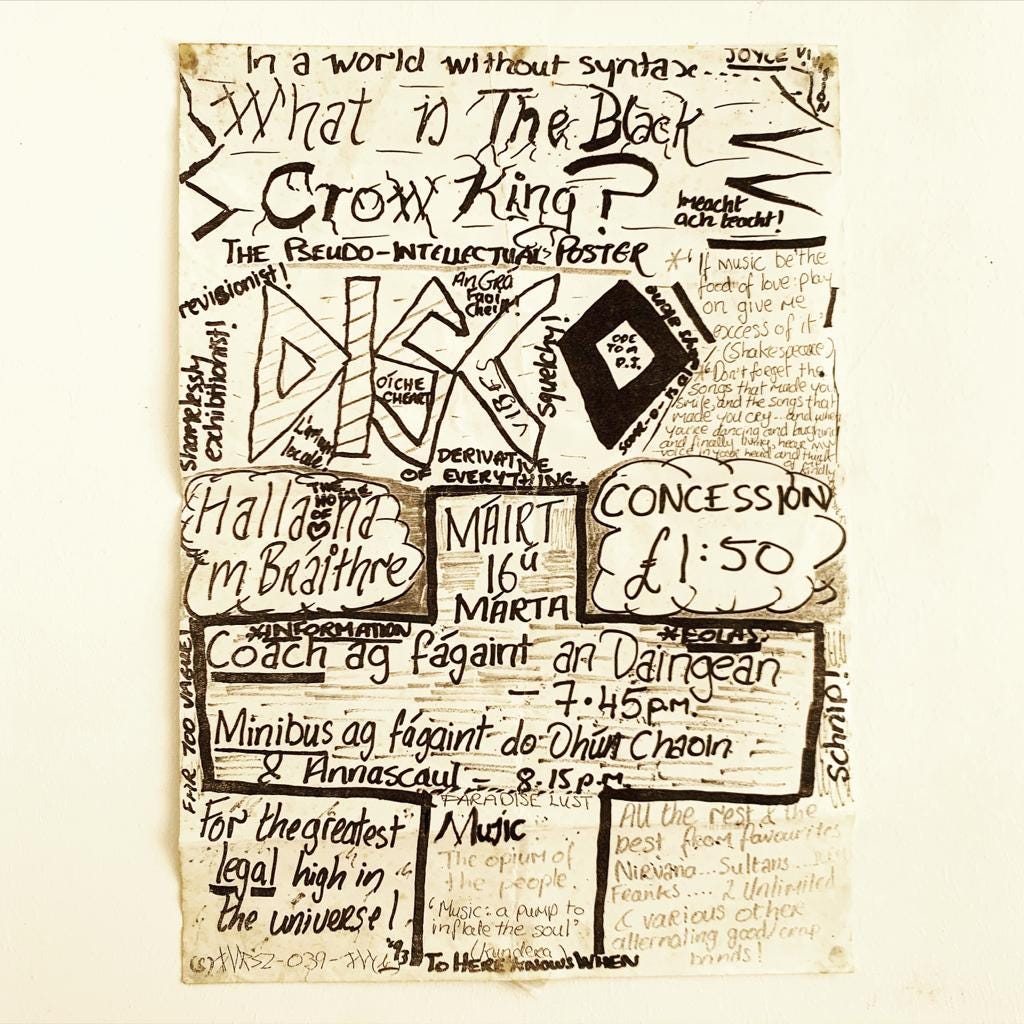 In a world without syntax....
JOYCE
What is The Black
Crow King?
Imeacht
ach teacht!
THE PSEUDO-INTELLECTUAL POSTER
revisionist!
shamelessly
exhibitionist!
DISCO
An Grá
Faoi
Cheilt!
OÍCHE
CHEART
Liming
locale!
VIBES
squelchy!
ODE
TO A
P.S.
DERIVATIVE
OF EVERYTHING.
*'If music be the
food of love play
on give me
excess of it'
(Shakespeare)
*Don't forget the
songs that made you
smile, and the songs that
made you cry...and when
you're dancing and laughing
and finally living, hear my
voice in your head and think
of kindly
Halla na
m Bráithre
THE
HOUSE
OF
MÁIRT
16ú
MÁRTA
CONCESSION
£1:50
*INFORMATION
*EOLAS.
Coach ag fágaint an Daingean
- 7.45p.m.
Minibus ag fágaint do Dhún Chaoin
& Annascaul - 8.15p.m.
FAR TOO VAGUE!
Schnip!
For the greatest
legal high in
the universe!
'93
PARADISE LUST
Music
The opium of
the people.
'Music: a pump to
inflate the soul'
(Kundera)
TO HERE KNOWS WHEN
All the rest & the
best from favourites
Nirvana...Sultans...
Franks....2 Unlimited
& various other
alternating good/crap
bands!